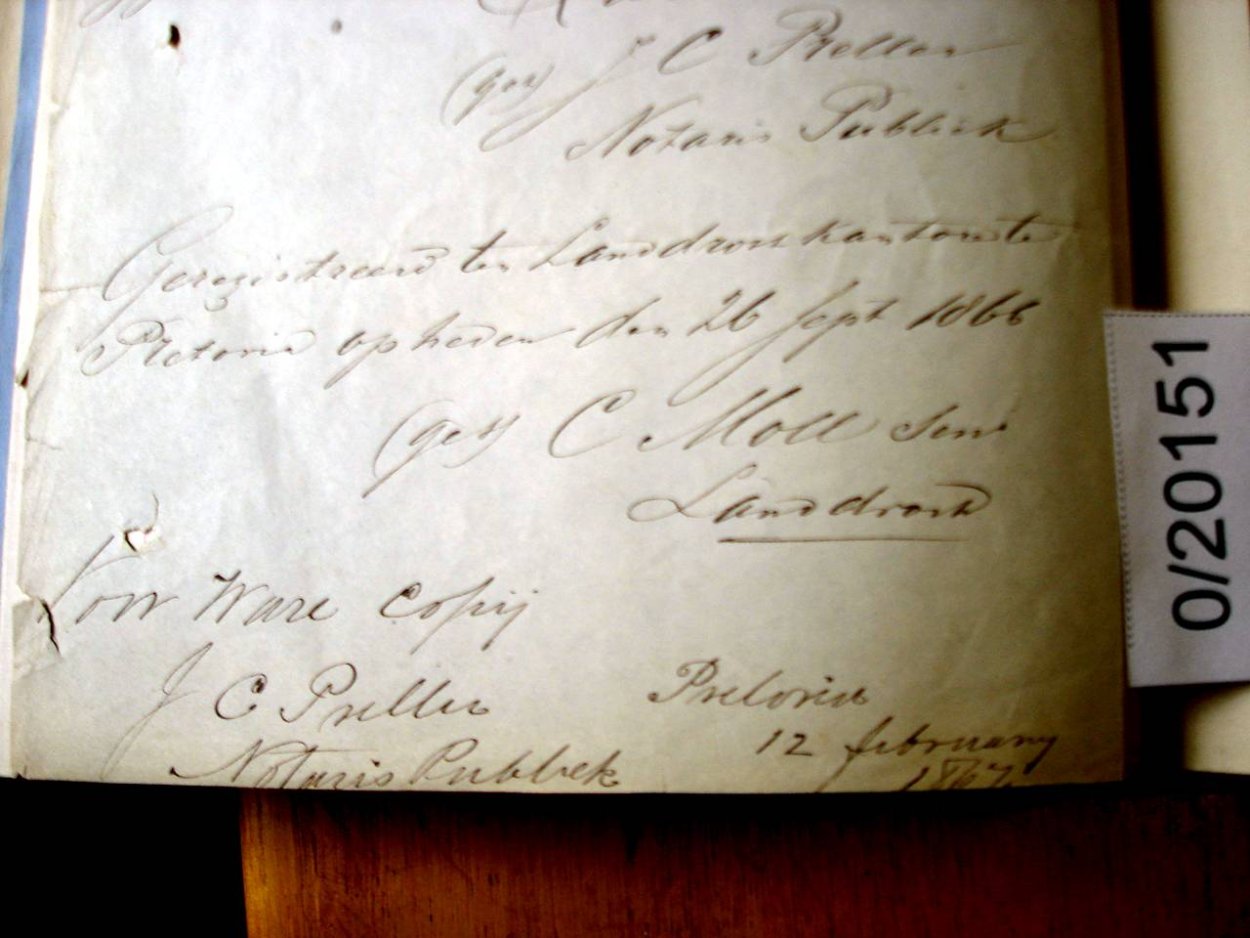 (get) J C Preller
Notaris Publiek
Geregistreerd ten Landdrostkantoore te
Pretoria op heden den 26 Sept 1866
(get) C Moll Senr
Landdrost
Voor Ware Copij
J C Preller
Notaris Publiek
Pretoria
12 february
1867
0/20151